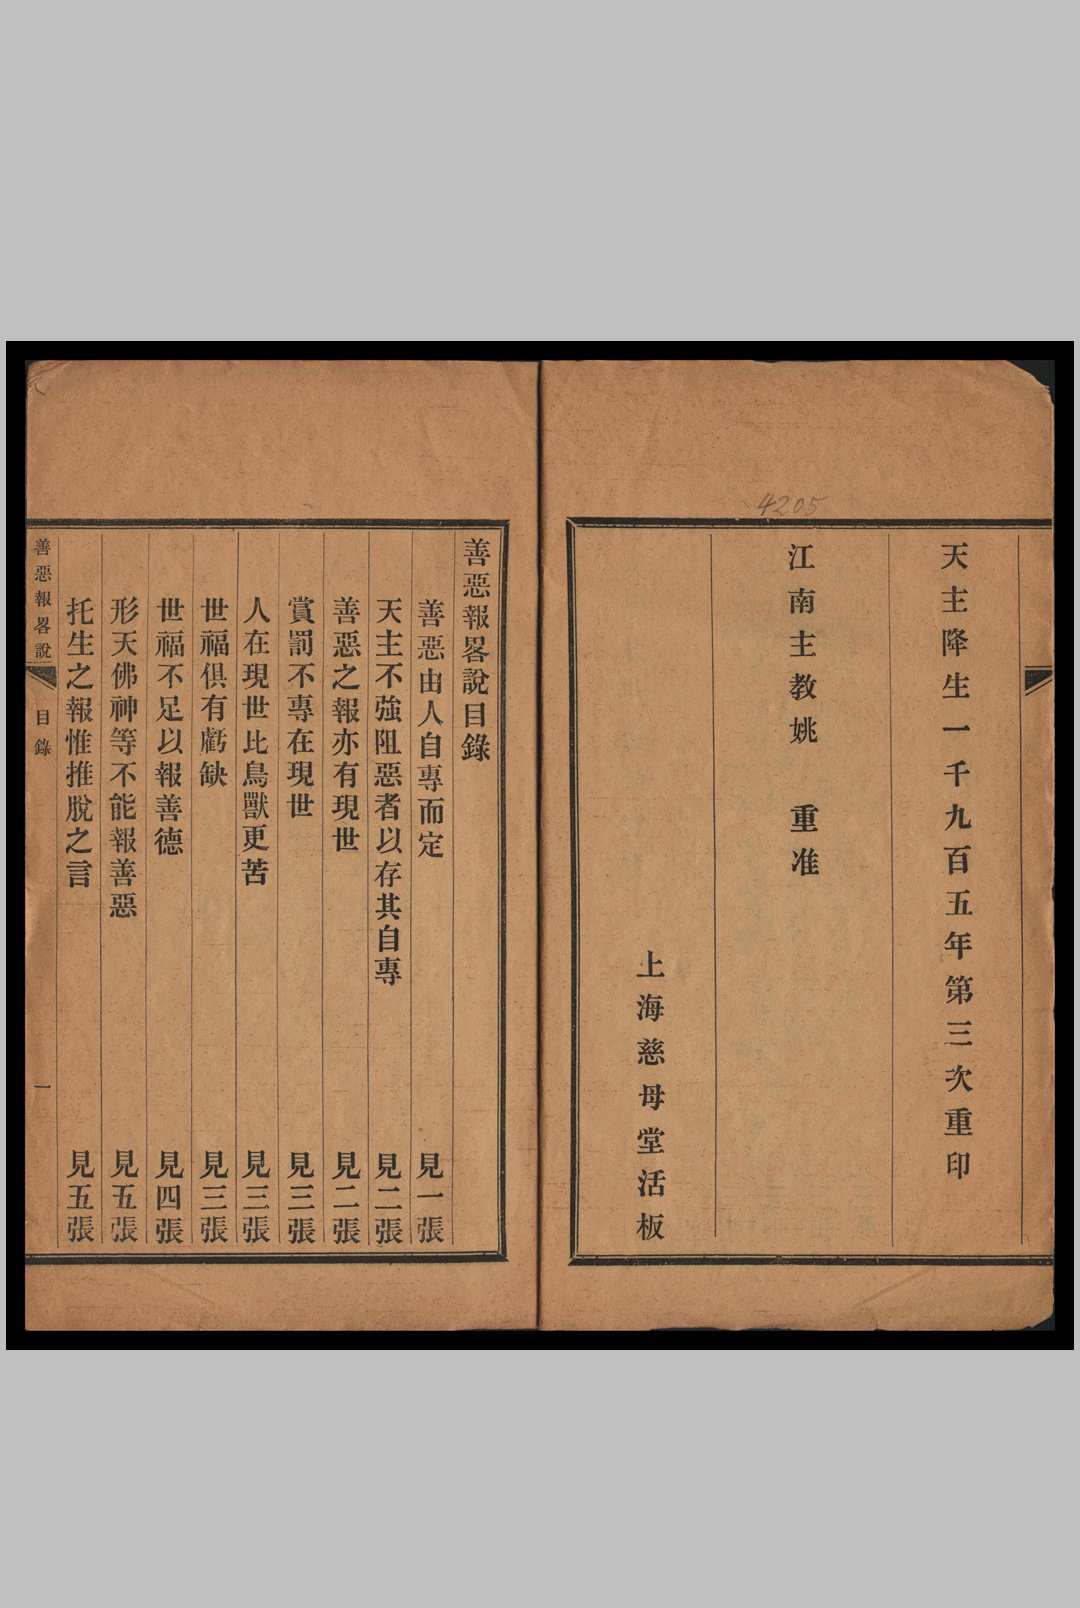 4205
天主降生一千九百五年第三次重印
江南主教姚 重准
上海慈母堂活板
善惡報畧說目錄
善惡由人自專而定 見一張
天主不強阻惡者以存其自專 見二張
善惡之報亦有現世 見二張
賞罰不專在現世 見三張
人在現世比鳥獸更苦 見三張
世福俱有虧缺 見三張
世福不足以報善德 見四張
形天佛神等不能報善惡 見五張
托生之報惟推脫之言 見五張
善惡報畧說 目錄 一